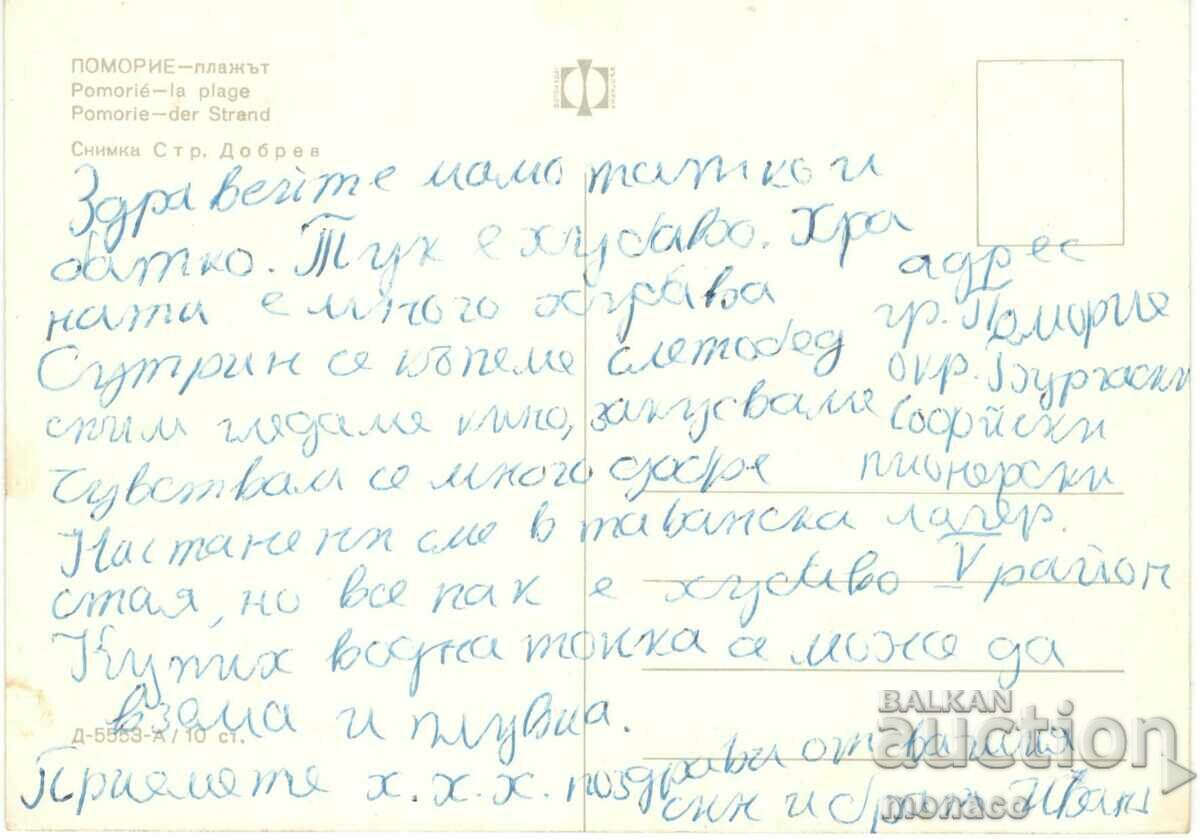 ПОМОРИЕ—плажът
Pomorié—la plage
Pomorie—der Strand
Снимка Стр. Добрев
Здравейте мамо татко и
батко. Тук е хубаво. Хра
ната е много хубава
Сутрин се къпеме следобед
спим гледаме кино, закусваме
Чувствам се много добре
Настанени сме в таванска
стая, но все пак е хубаво
Купих водна топка а може да
взема и плувка.
Приемете х. х. х. поздрави от вашия
син и брат Иван
адрес
гр. Поморие
окр. Бургаски
Софийски
пионерски
лагер.
V район
Д-5553-А/10 ст.
BALKAN
auction
monaco